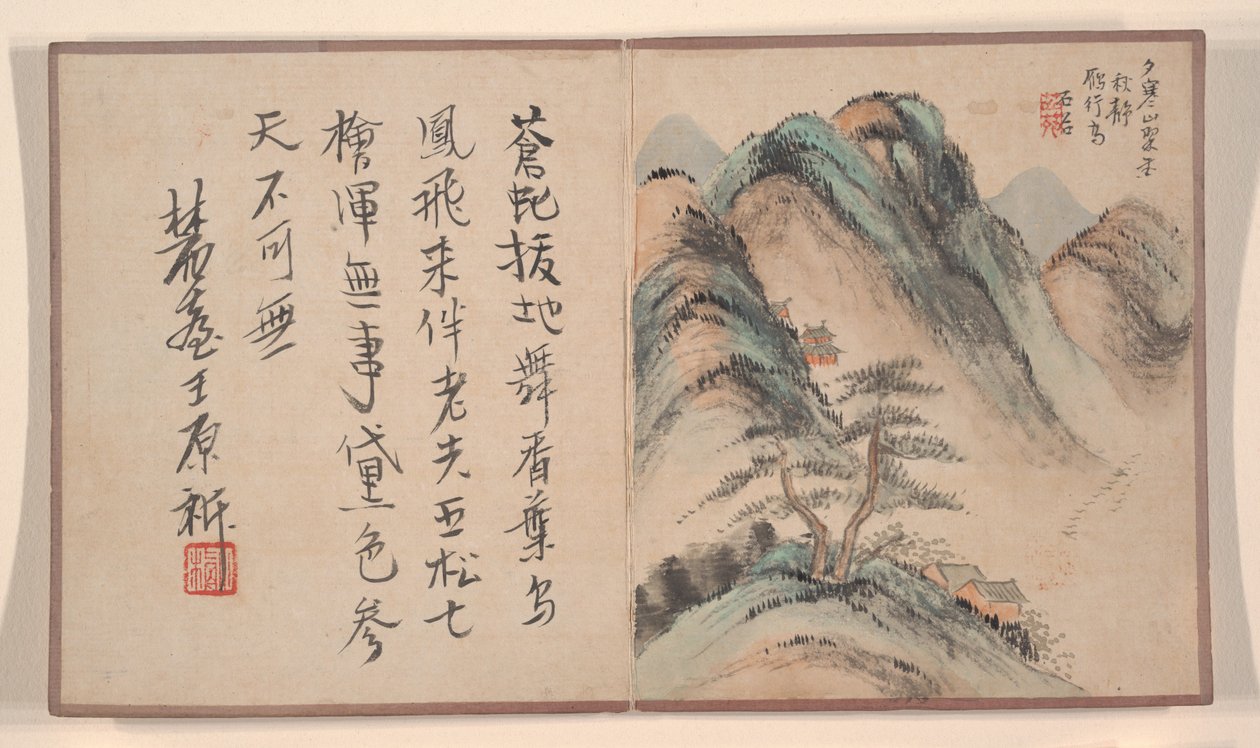 夕寒山翠重
秋静
雁行高
石谷
蒼虵拔地舞香葉烏
鳳飛来伴老夫五松七
檜渾無事黛色參
天不可無
麓臺王原祁